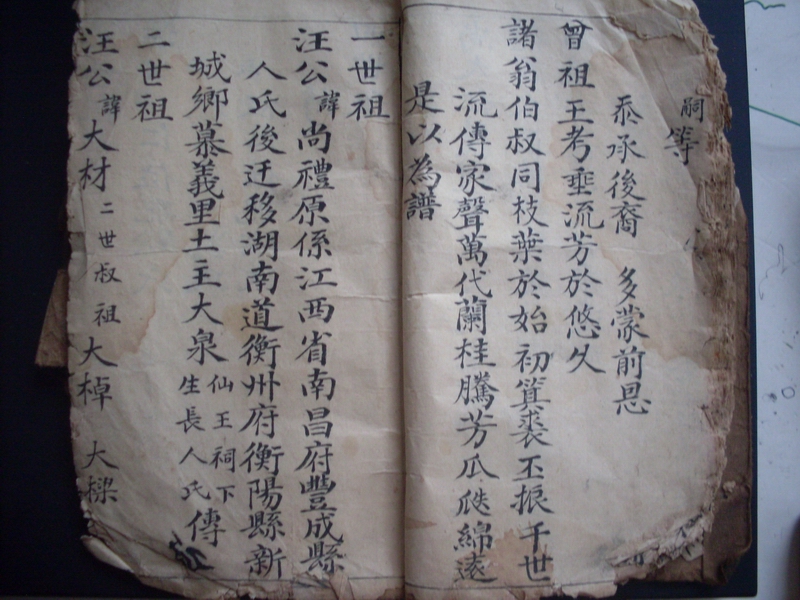 嗣等
忝承後裔 多蒙前恩
曾祖王考垂流芳於悠久
諸翁伯叔同枝葉於始初箕裘丕振千世
流傳家聲萬代蘭桂騰芳瓜瓞綿遠
是以為譜
一世祖
汪公諱尚禮原係江西省南昌府豐成縣
人氏後迁移湖南道衡州府衡陽縣新
城鄉慕義里土主大泉仙王祠下生長人氏傳
二世祖
汪公諱大材二世叔祖大棹 大樑